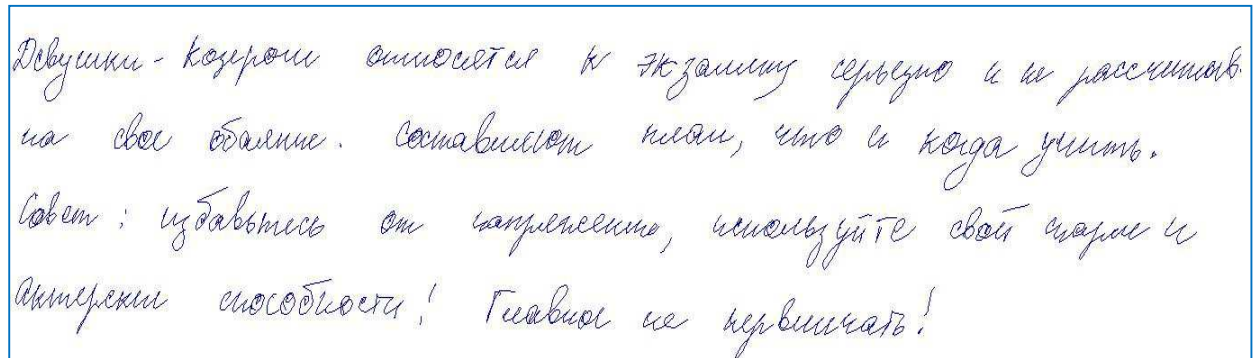 Девушки - Козероги относятся к экзамену серьезно и не рассчитыв.
на свое обаяние. Составляют план, что и когда учить.
Совет : избавьтесь от напряжения, используйте свой шарм и
актерские способности! Главное не нервничать!